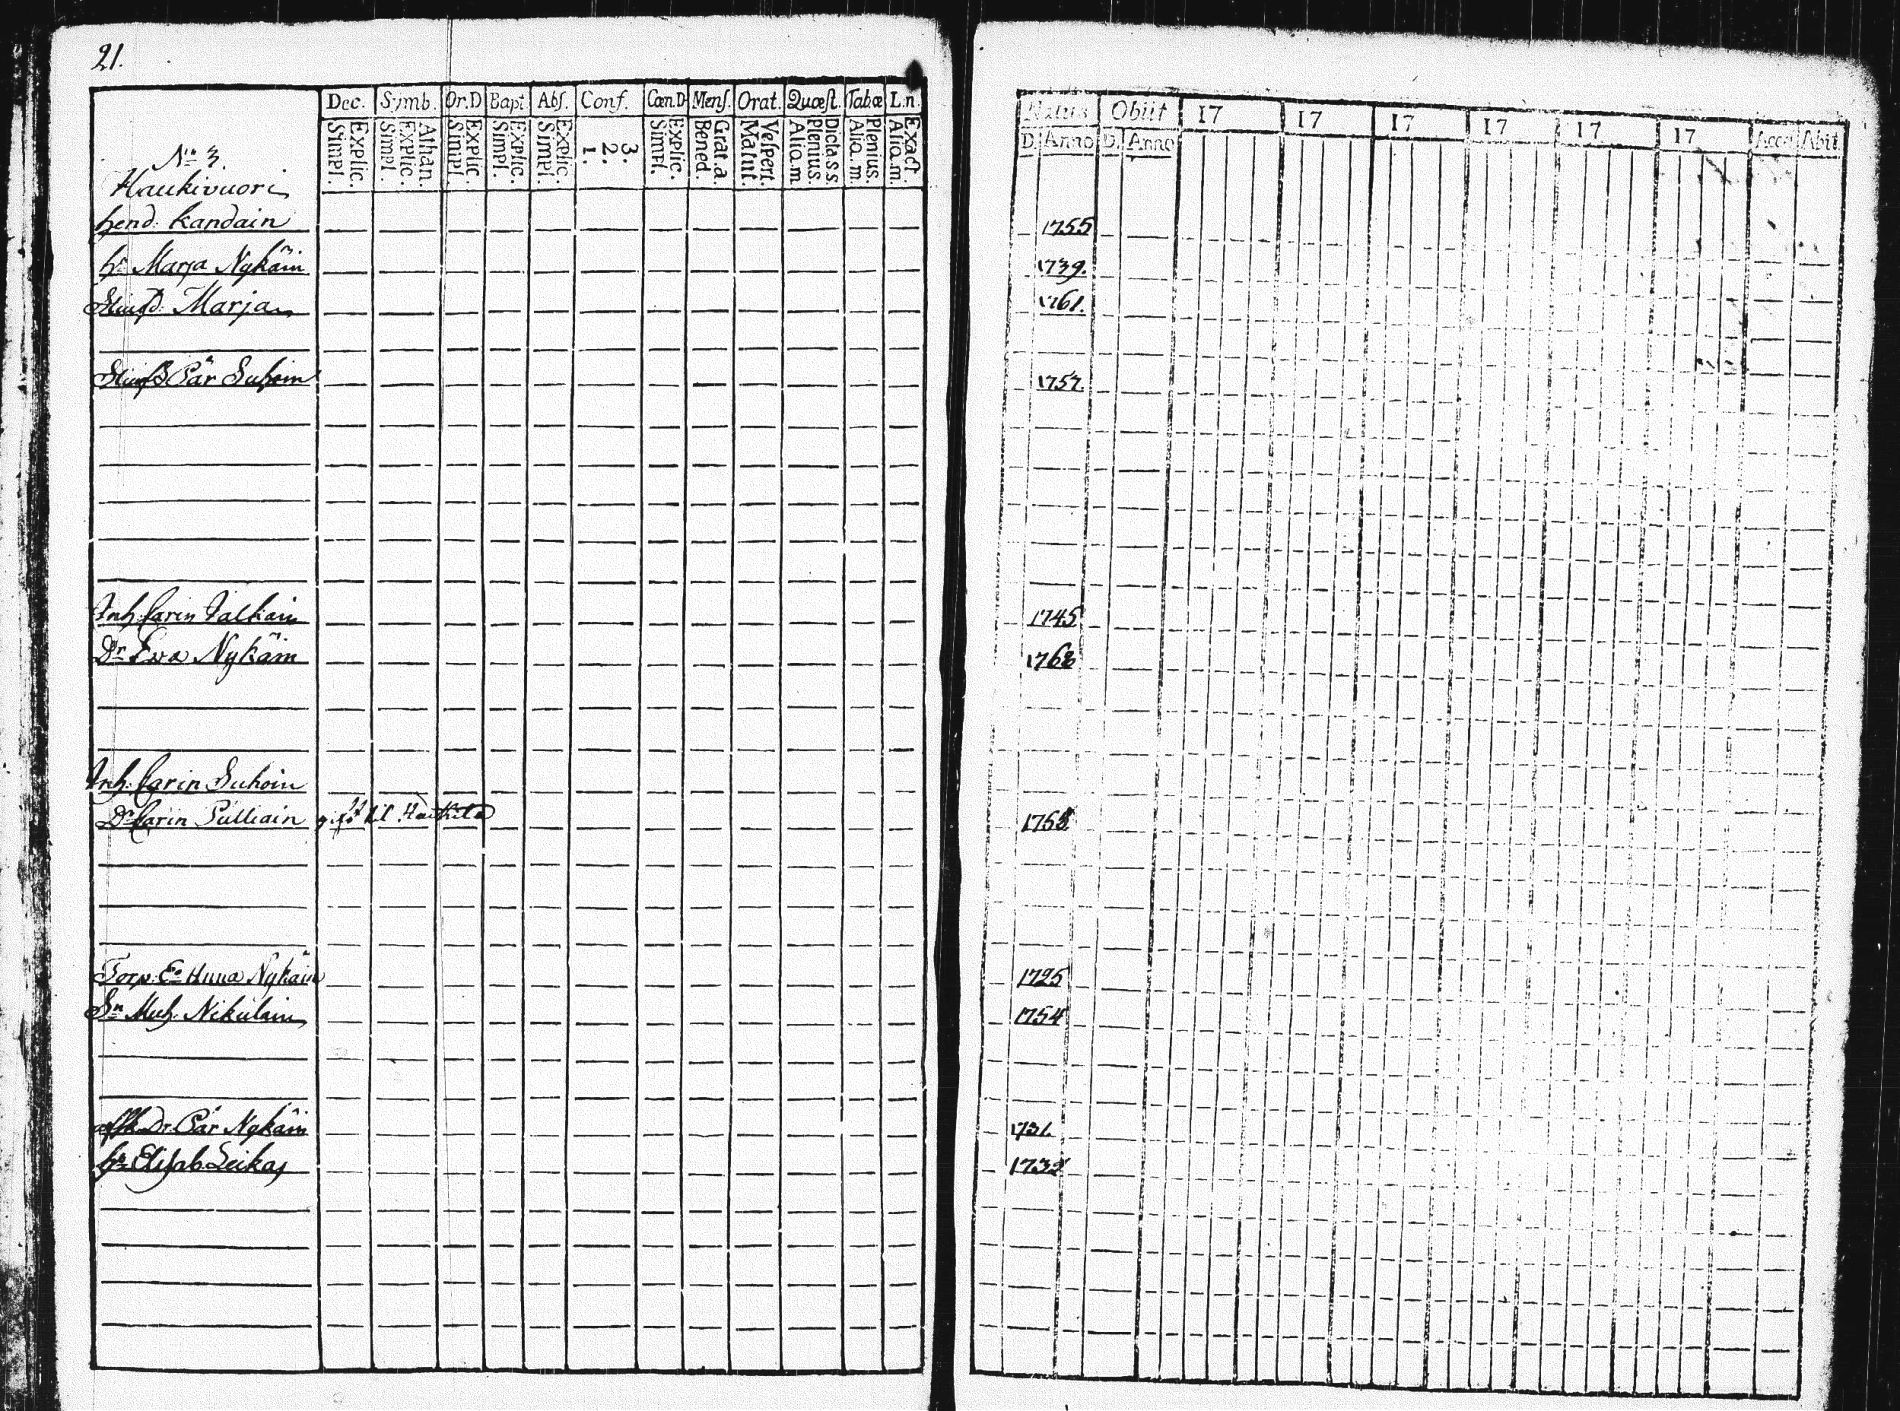 21.
Dec. Symb. Or.D Bapt Abs. Conf. Cœn.D Mens. Orat. Quæst. Tabæ L.n.
Simpl. Explic. Simpl. Explic. Athan. Simpl. Explic. Simpl. Explic. Simpl. Explic. 1. 2. 3. Simpl. Explic. Bened. Grat.a. Matut. Vespert. Alio.m Plenius. Dicta.s.s. Alia.m. Plenius. Alia.m. Exact.
Natus Obiit 17 17 17 17 17 17 Acces Abit
D. Anno D. Anno
No 3.
Haukivuori
hend. Kandain 1755
hr Marja Nykäin 1739.
Marja 1761.
Pär Suhoin 1757.
Inh. Carin Valkain 1745
Dr Eva Nykäin 1768
Inh. Carin Suhoin
Dr Carin Pulliain gift til 175
Torp. Ea Anna Nykäin 1725
Sn Mich. Nikulain 1754
Pär Nykäin 1731.
hr Elisab Leikas 173